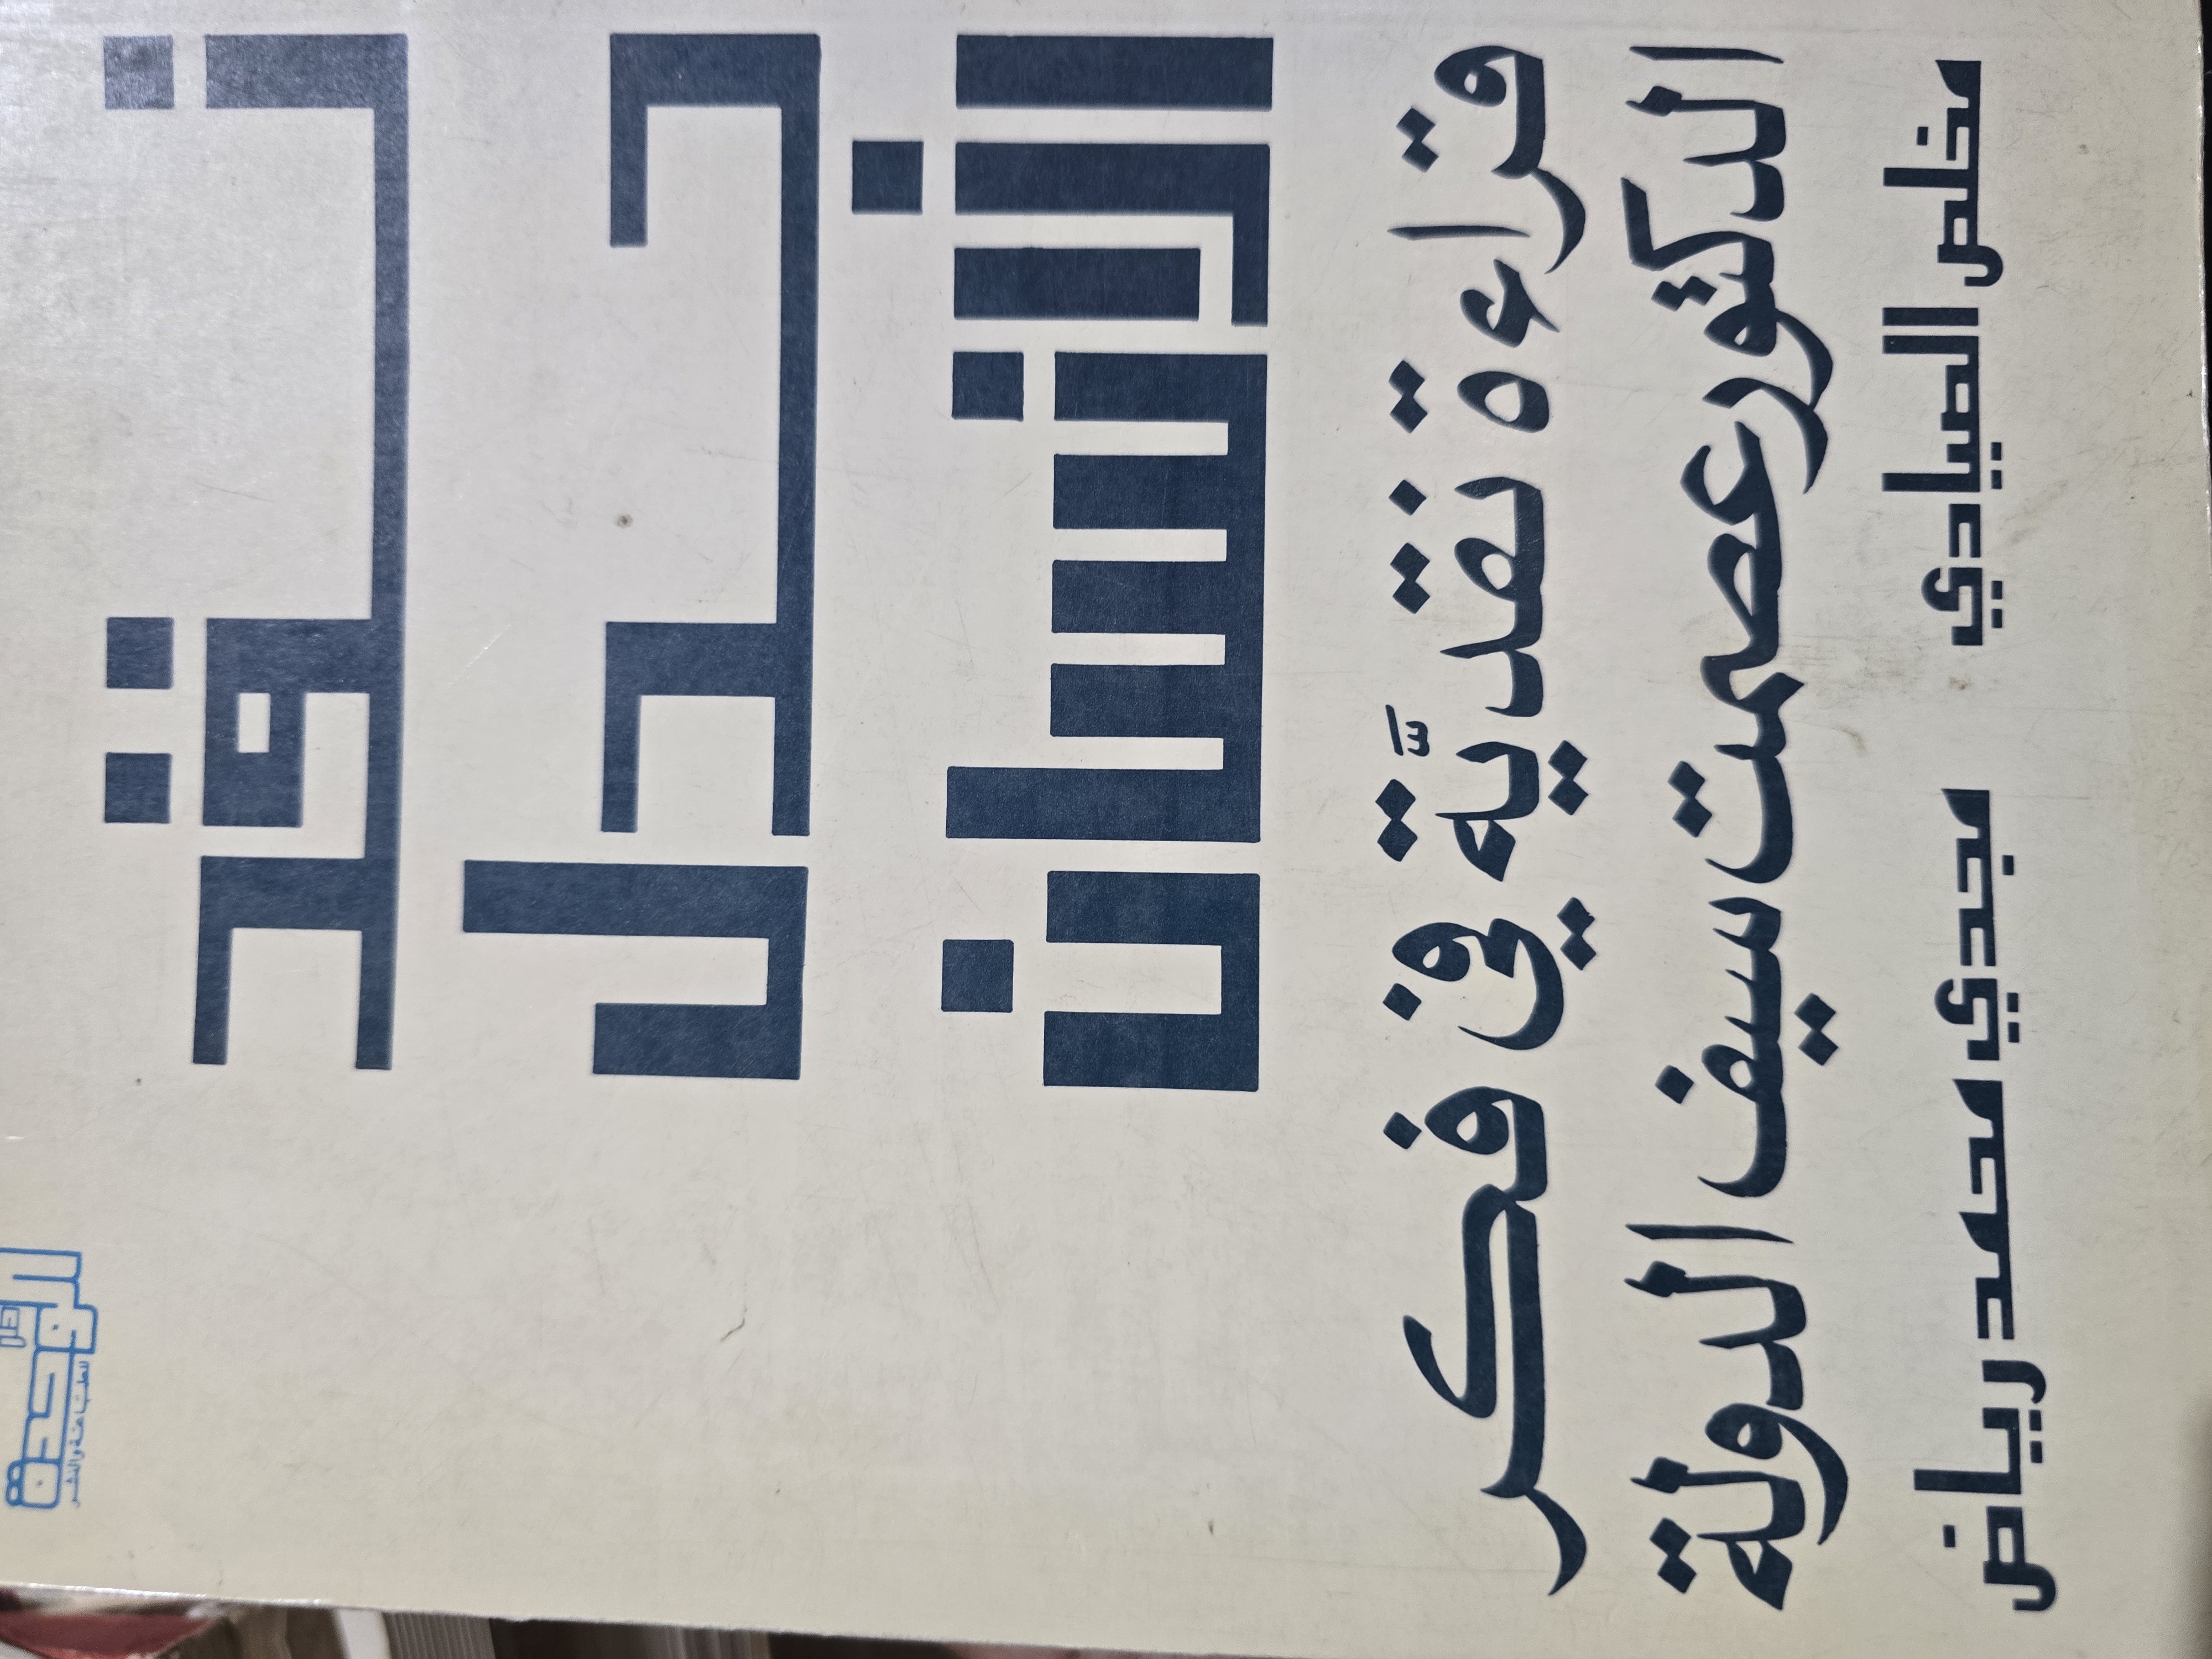 نقد
جدل
الإنسان
قراءة نقديّة في فكر
الدكتور عصمت سيف الدولة
مخلص الصيادي
مجدي محمد رياض
دار
الوحدة
للطباعة والنشر